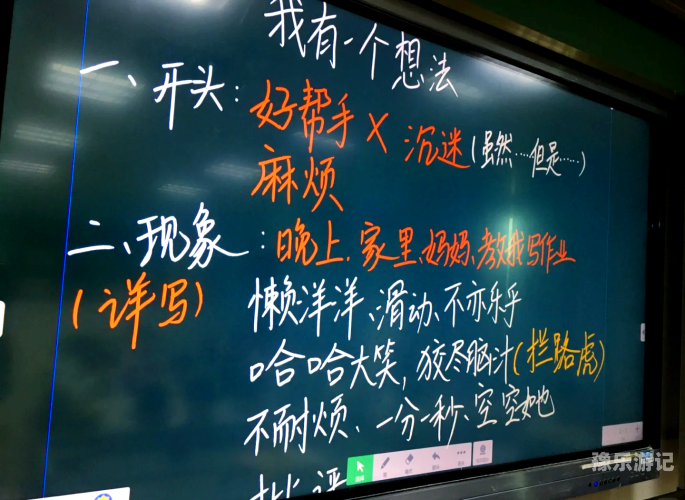 我有一个想法
一、开头：好帮手 X 沉迷(虽然……但是……)
麻烦
二、现象：晚上、家里、妈妈、教我写作业
(详写) 懒洋洋、滑动、不亦乐乎
哈哈大笑，狡尽脑汁(拦路虎)
不耐烦、一分一秒、空空如也
批评
豫乐游记